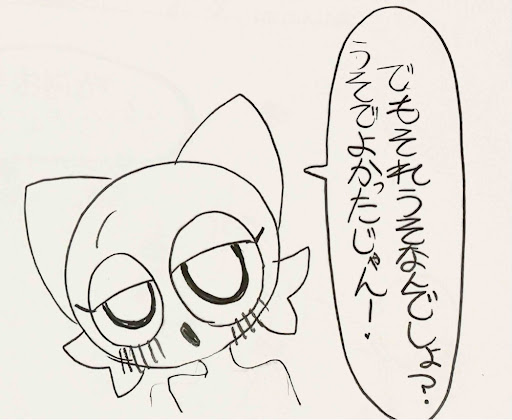 でもそれうそなんでしょ?
うそでよかったじゃんー.